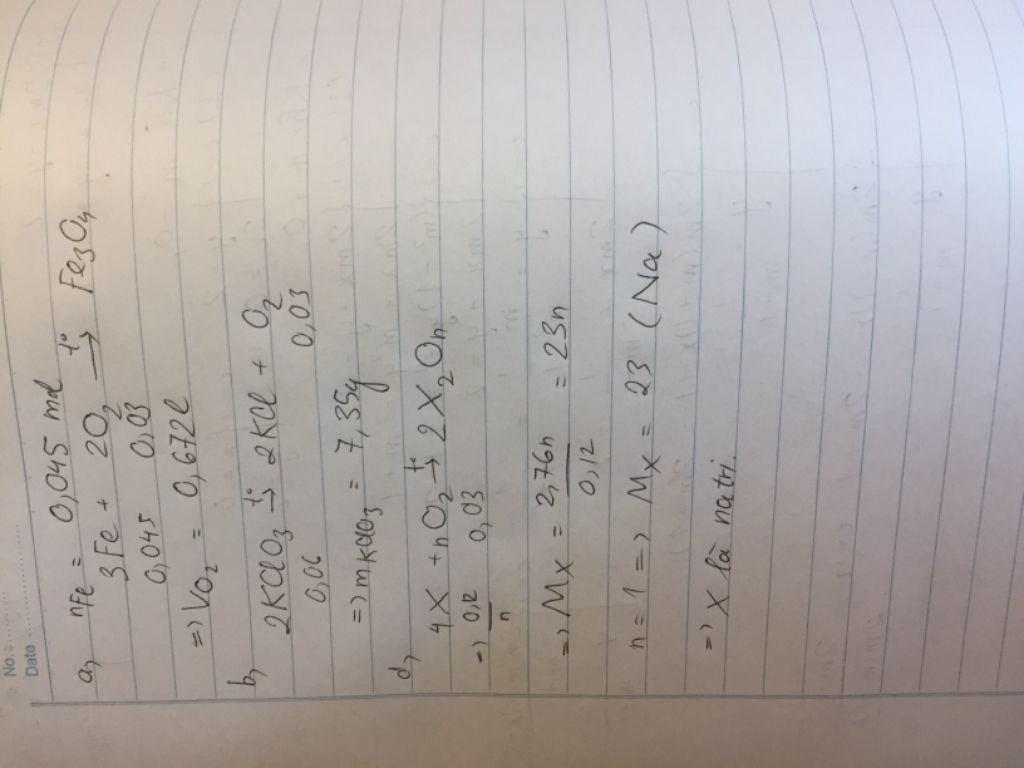 No.
Date
a, nFe = 0,045 mol
3Fe + 2O2 t° → Fe3O4
0,045 0,03
=> VO2 = 0,672l
b,
2KClO3 t° → 2KCl + O2
0,06 0,03
=> mKClO3 = 7,35g
d,
4X + nO2 t° → 2X2On
=> 0,12/n 0,03
=> MX = 2,76n/0,12 = 23n
n = 1 => MX = 23 (Na)
=> X là natri.